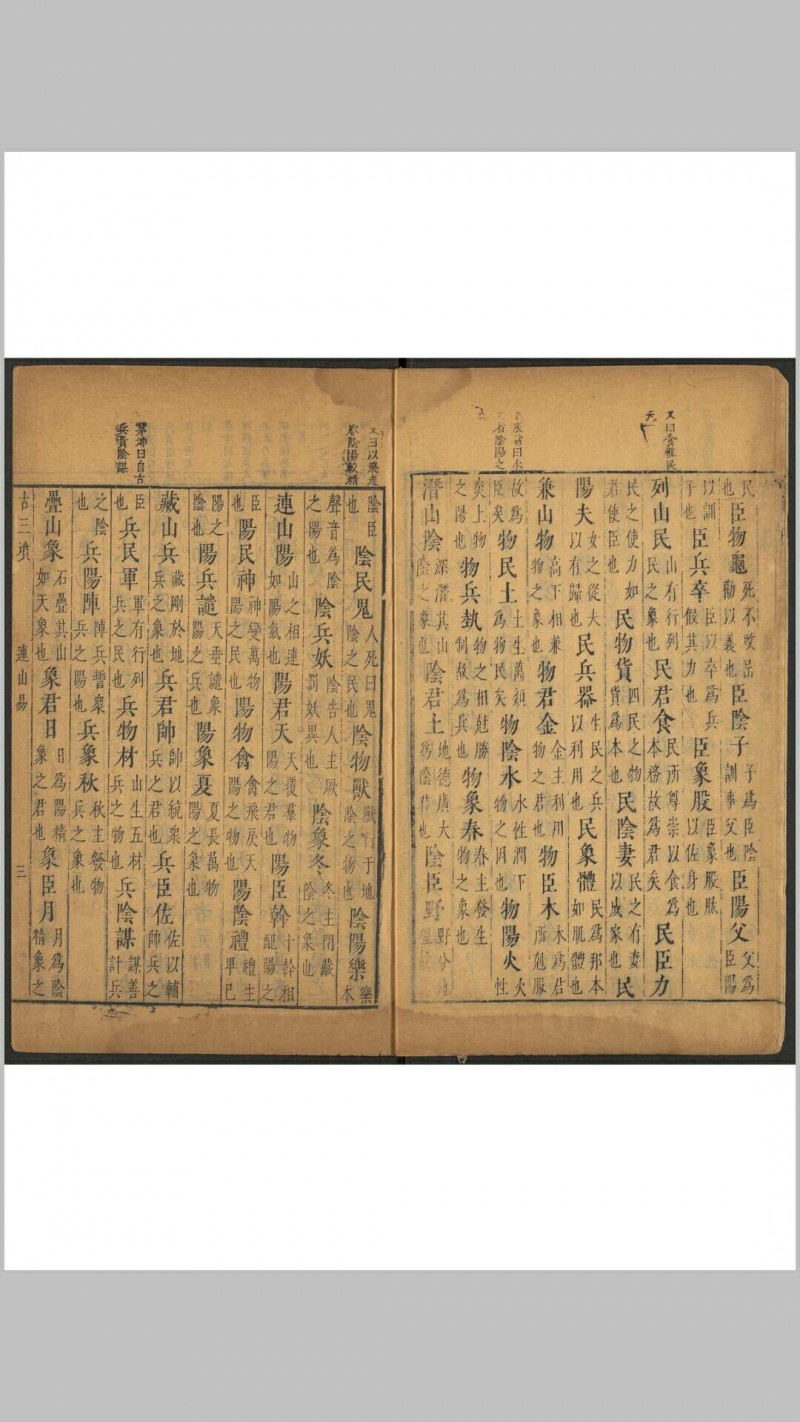 又曰食惟民
天
民也臣物龜死不攺勸以義也臣陰子子為臣陰訓事父也臣陽父父為臣陽
以訓子也臣兵卒臣以卒為兵假其力也臣象股臣象股肱以佐身也
列山民山有行列民之象也民君食民所尊崇以食為本務故為君矣民臣力
民之使力如君使臣也民物貨四民之物貨為本也民陰妻民之有妻以成家也民
陽夫女之從夫以有歸也民兵器生民之兵以利用也民象體民為邦本如肌體也
兼山物高下相兼物之象也物君金金主利用物之君也物臣木木為君所尅服
故為臣矣物民土土生萬類為物民矣物陰水水性潤下物之因也物陽火火性
炎上物之陽也物兵執物之相尅勝制故為兵也物象春春主發生物之象也
潛山陰深潛其山陰之象也陰君土地德廣大為陰君也陰臣野野分地
陰臣也陰民鬼人死曰鬼陰之民也陰物獸獸行于地陰之物也陰陽樂樂本
聲音為陰之陽也陰兵妖陰告人主厥罰妖異也陰象冬冬主閉藏陰之象也
連山陽山之相連如陽氣也陽君天天覆羣物陽之君也陽臣幹十幹相配陽之
臣也陽民神神變萬物陽之民也陽物禽禽飛戾天陽之物也陽陰禮禮生早巳
陽之陰也陽兵譴天垂譴象陽之兵也陽象夏夏長萬物陽之象也
藏山兵藏剛於地兵之象也兵君帥帥以統衆兵之君也兵臣佐佐以輔帥兵之
臣也兵民軍軍有行列兵之民也兵物材山生五材兵之物也兵陰謀謀善計兵
之陰也兵陽陣陣兵誓衆兵之陽也兵象秋秋主殺物兵之象也
疊山象石疊其山如天象也象君日日為陽精象之君也象臣月月為陰精象之
古三墳 連山易 三